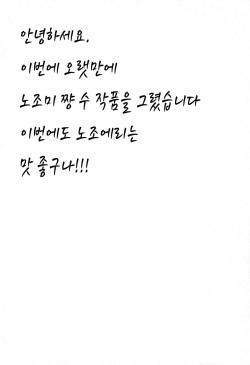 안녕하세요.
이번에 오랫만에
노조미 쨩 수 작품을 그렸습니다
이번에도 노조에리는
맛 좋구나!!!